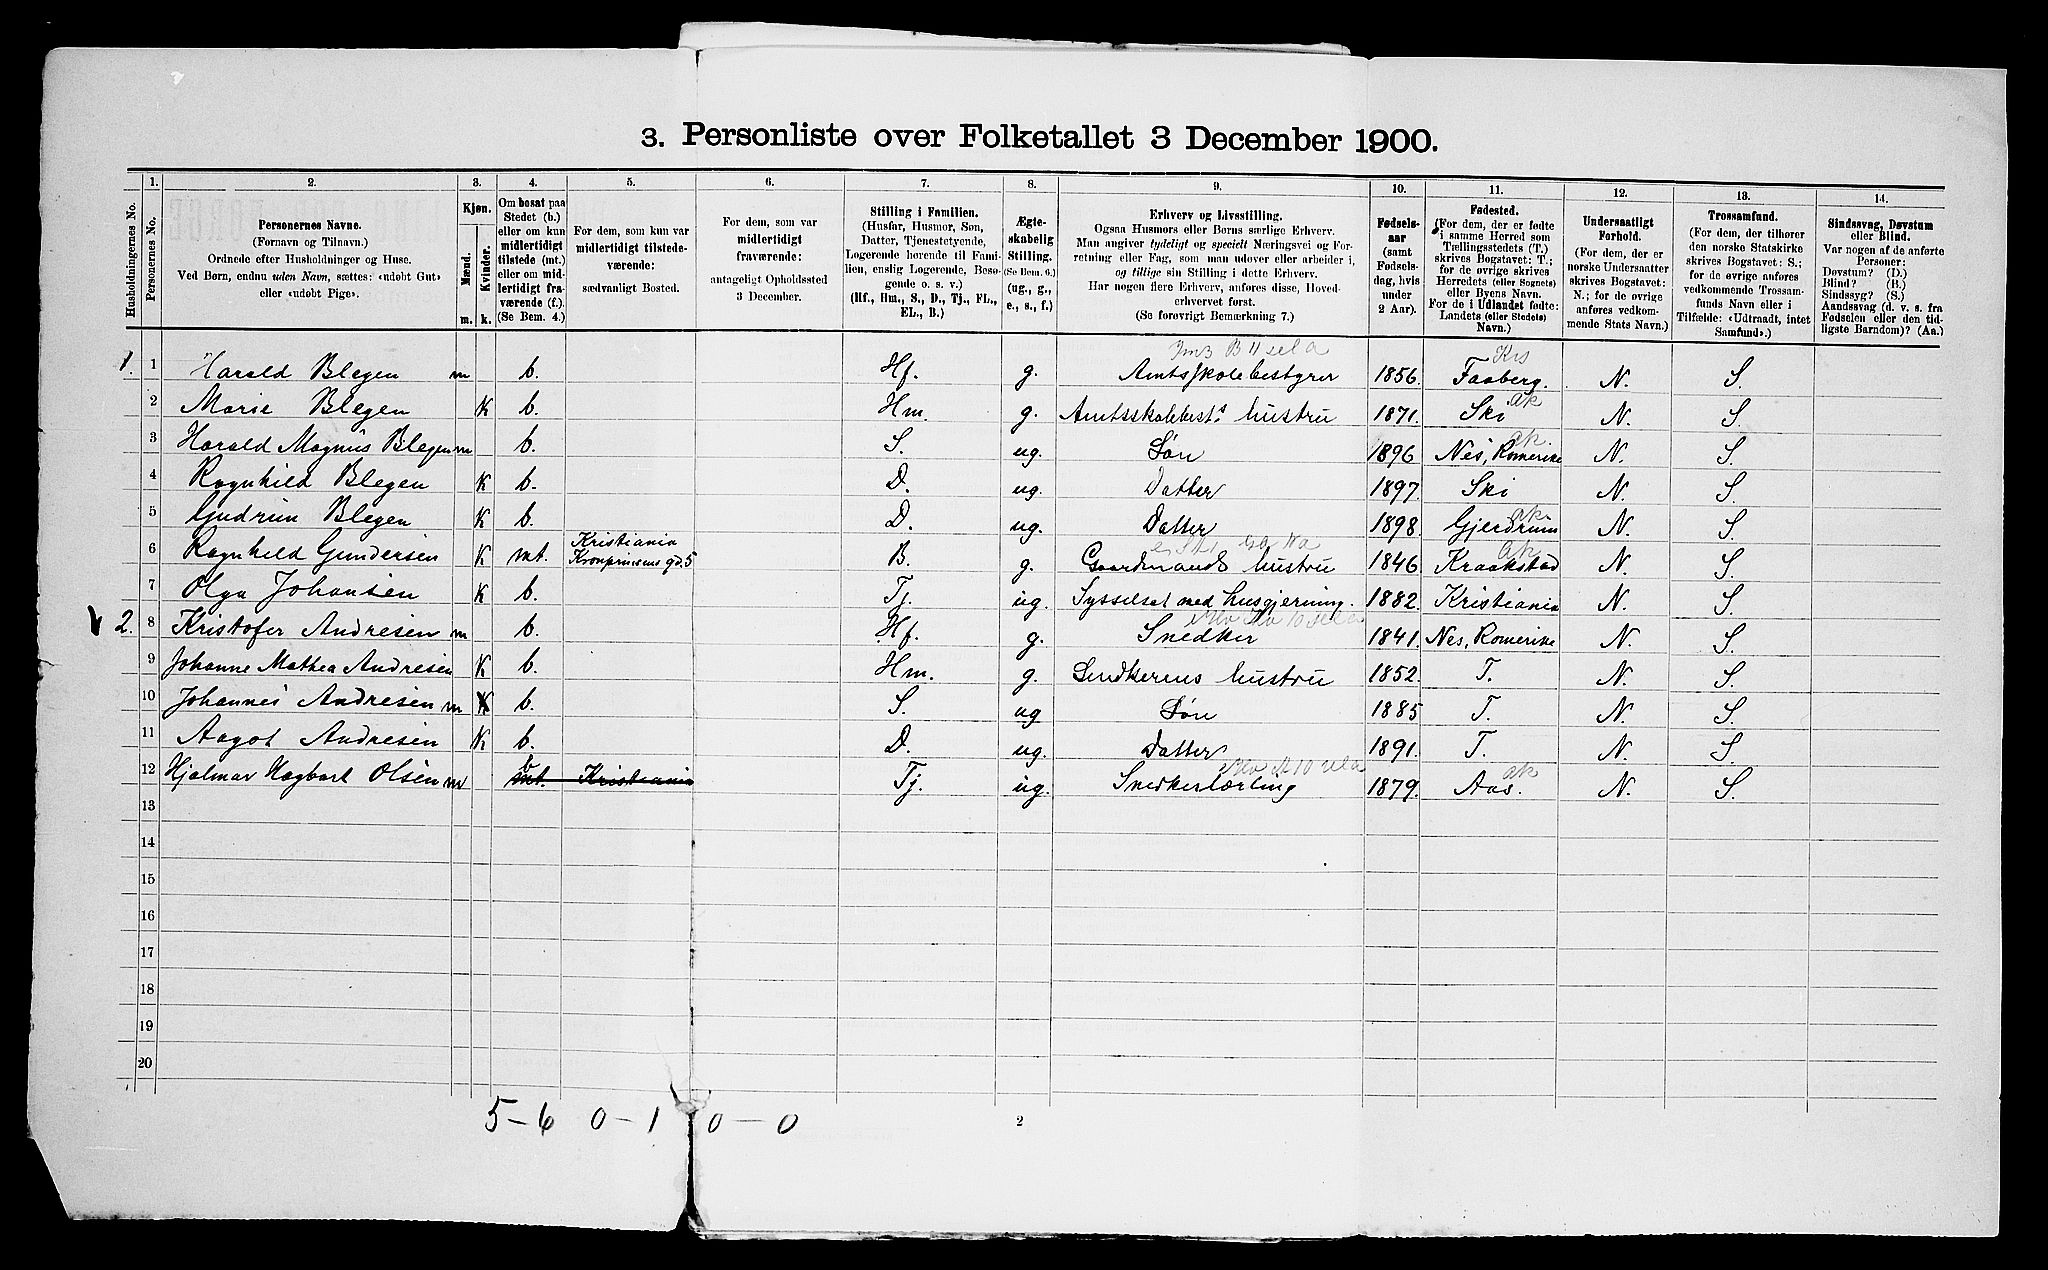 3. Personliste over Folketallet 3 December 1900.
Husholdningernes No.
1. Personernes No.
2. Personernes Navne. (Fornavn og Tilnavn.) Ordnede efter Husholdninger og Huse. Ved Børn, endnu uden Navn, sættes: «udøbt Gut» eller «udøbt Pige».
3. Kjøn. Mænd. m. Kvinder. k.
4. Om bosat paa Stedet (b.) eller om kun midlertidigt tilstede (mt.) eller om midlertidigt fraværende (f.). (Se Bem. 4.)
5. For dem, som kun var midlertidigt tilstedeværende: sædvanligt Bosted.
6. For dem, som var midlertidigt fraværende: antageligt Opholdssted 3 December.
7. Stilling i Familien. (Husfar, Husmor, Søn, Datter, Tjenestetyende, Logerende hørende til Familien, enslig Logerende, Besøgende o. s. v.) (Hf., Hm., S., D., Tj., FL., EL., B.)
8. Ægteskabelig Stilling. (Se Bem. 6.) (ug., g., e., s., f.)
9. Erhverv og Livsstilling. Ogsaa Husmors eller Børns særlige Erhverv. Man angiver tydeligt og specielt Næringsvei og Forretning eller Fag, som man udøver eller arbeider i, og tillige sin Stilling i dette Erhverv. Har nogen flere Erhverv, anføres disse, Hovederhvervet først. (Se forøvrigt Bemærkning 7.)
10. Fødselsaar (samt Fødselsdag, hvis under 2 Aar).
11. Fødested. (For dem, der er fødte i samme Herred som Tællingsstedets (T.) skrives Bogstavet: T.; for de øvrige skrives Herredets (eller Sognets) eller Byens Navn. For de i Udlandet fødte: Landets (eller Stedets) Navn.)
12. Undersaatligt Forhold. (For dem, der er norske Undersaatter skrives Bogstavet: N.; for de øvrige anføres vedkommende Stats Navn.)
13. Trossamfund. (For dem, der tilhører den norske Statskirke skrives Bogstavet: S.; for de øvrige anføres vedkommende Trossamfunds Navn eller i Tilfælde: «Udtraadt, intet Samfund».)
14. Sindssvag, Døvstum eller Blind. Var nogen af de anførte Personer: Døvstum? (D.) Blind? (B.) Sindssyg? (S.) Aandssvag (d. v. s. fra Fødselen eller den tidligste Barndom)? (Aa.)
1. 1 Harald Blegen m b. Hf. g. Amtsskolebestyrer 1856. Faaberg. N. S.
2 Marie Blegen K b. Hm. g. Amtsskolebest.s hustru 1871. Ski ak N. S.
3 Harald Magnus Blegen m b. S. ug. Søn 1896 Nes, Romerike ak. N. S.
4 Ragnhild Blegen K b. D. ug. Datter 1897. Ski N. S.
5 Gudrun Blegen K b. D. ug. Datter 1898. Gjerdrum ak N. S.
6 Ragnhild Gundersen K mt. Kristiania Kronprinsens gd. 5 B. g. Gaardmands hustru 1846 Kraakstad ak N. S.
7 Olga Johansen K b. Tj. ug. Sysselsat med husgjerning. 1882. Kristiania N. S.
2. 8 Kristofer Andresen m b. Hf. g. Snedker 1841. Nes, Romerike N. S.
9 Johanne Mathea Andresen K b. Hm. g. Snedkerens hustru 1852. T. N. S.
10 Johannes Andresen m K b. S. ug Søn 1885 T. N. S.
11 Aagot Andresen K b. D. ug. Datter 1891. T. N. S.
12 Hjalmar Hagbart Olsen m b mt. Kristiania Tj. ug. Snedkerlærling 1879. Aas. ak N. S.
13
14
15
16
17
18
19
20
5-6 0-1 0-0
2